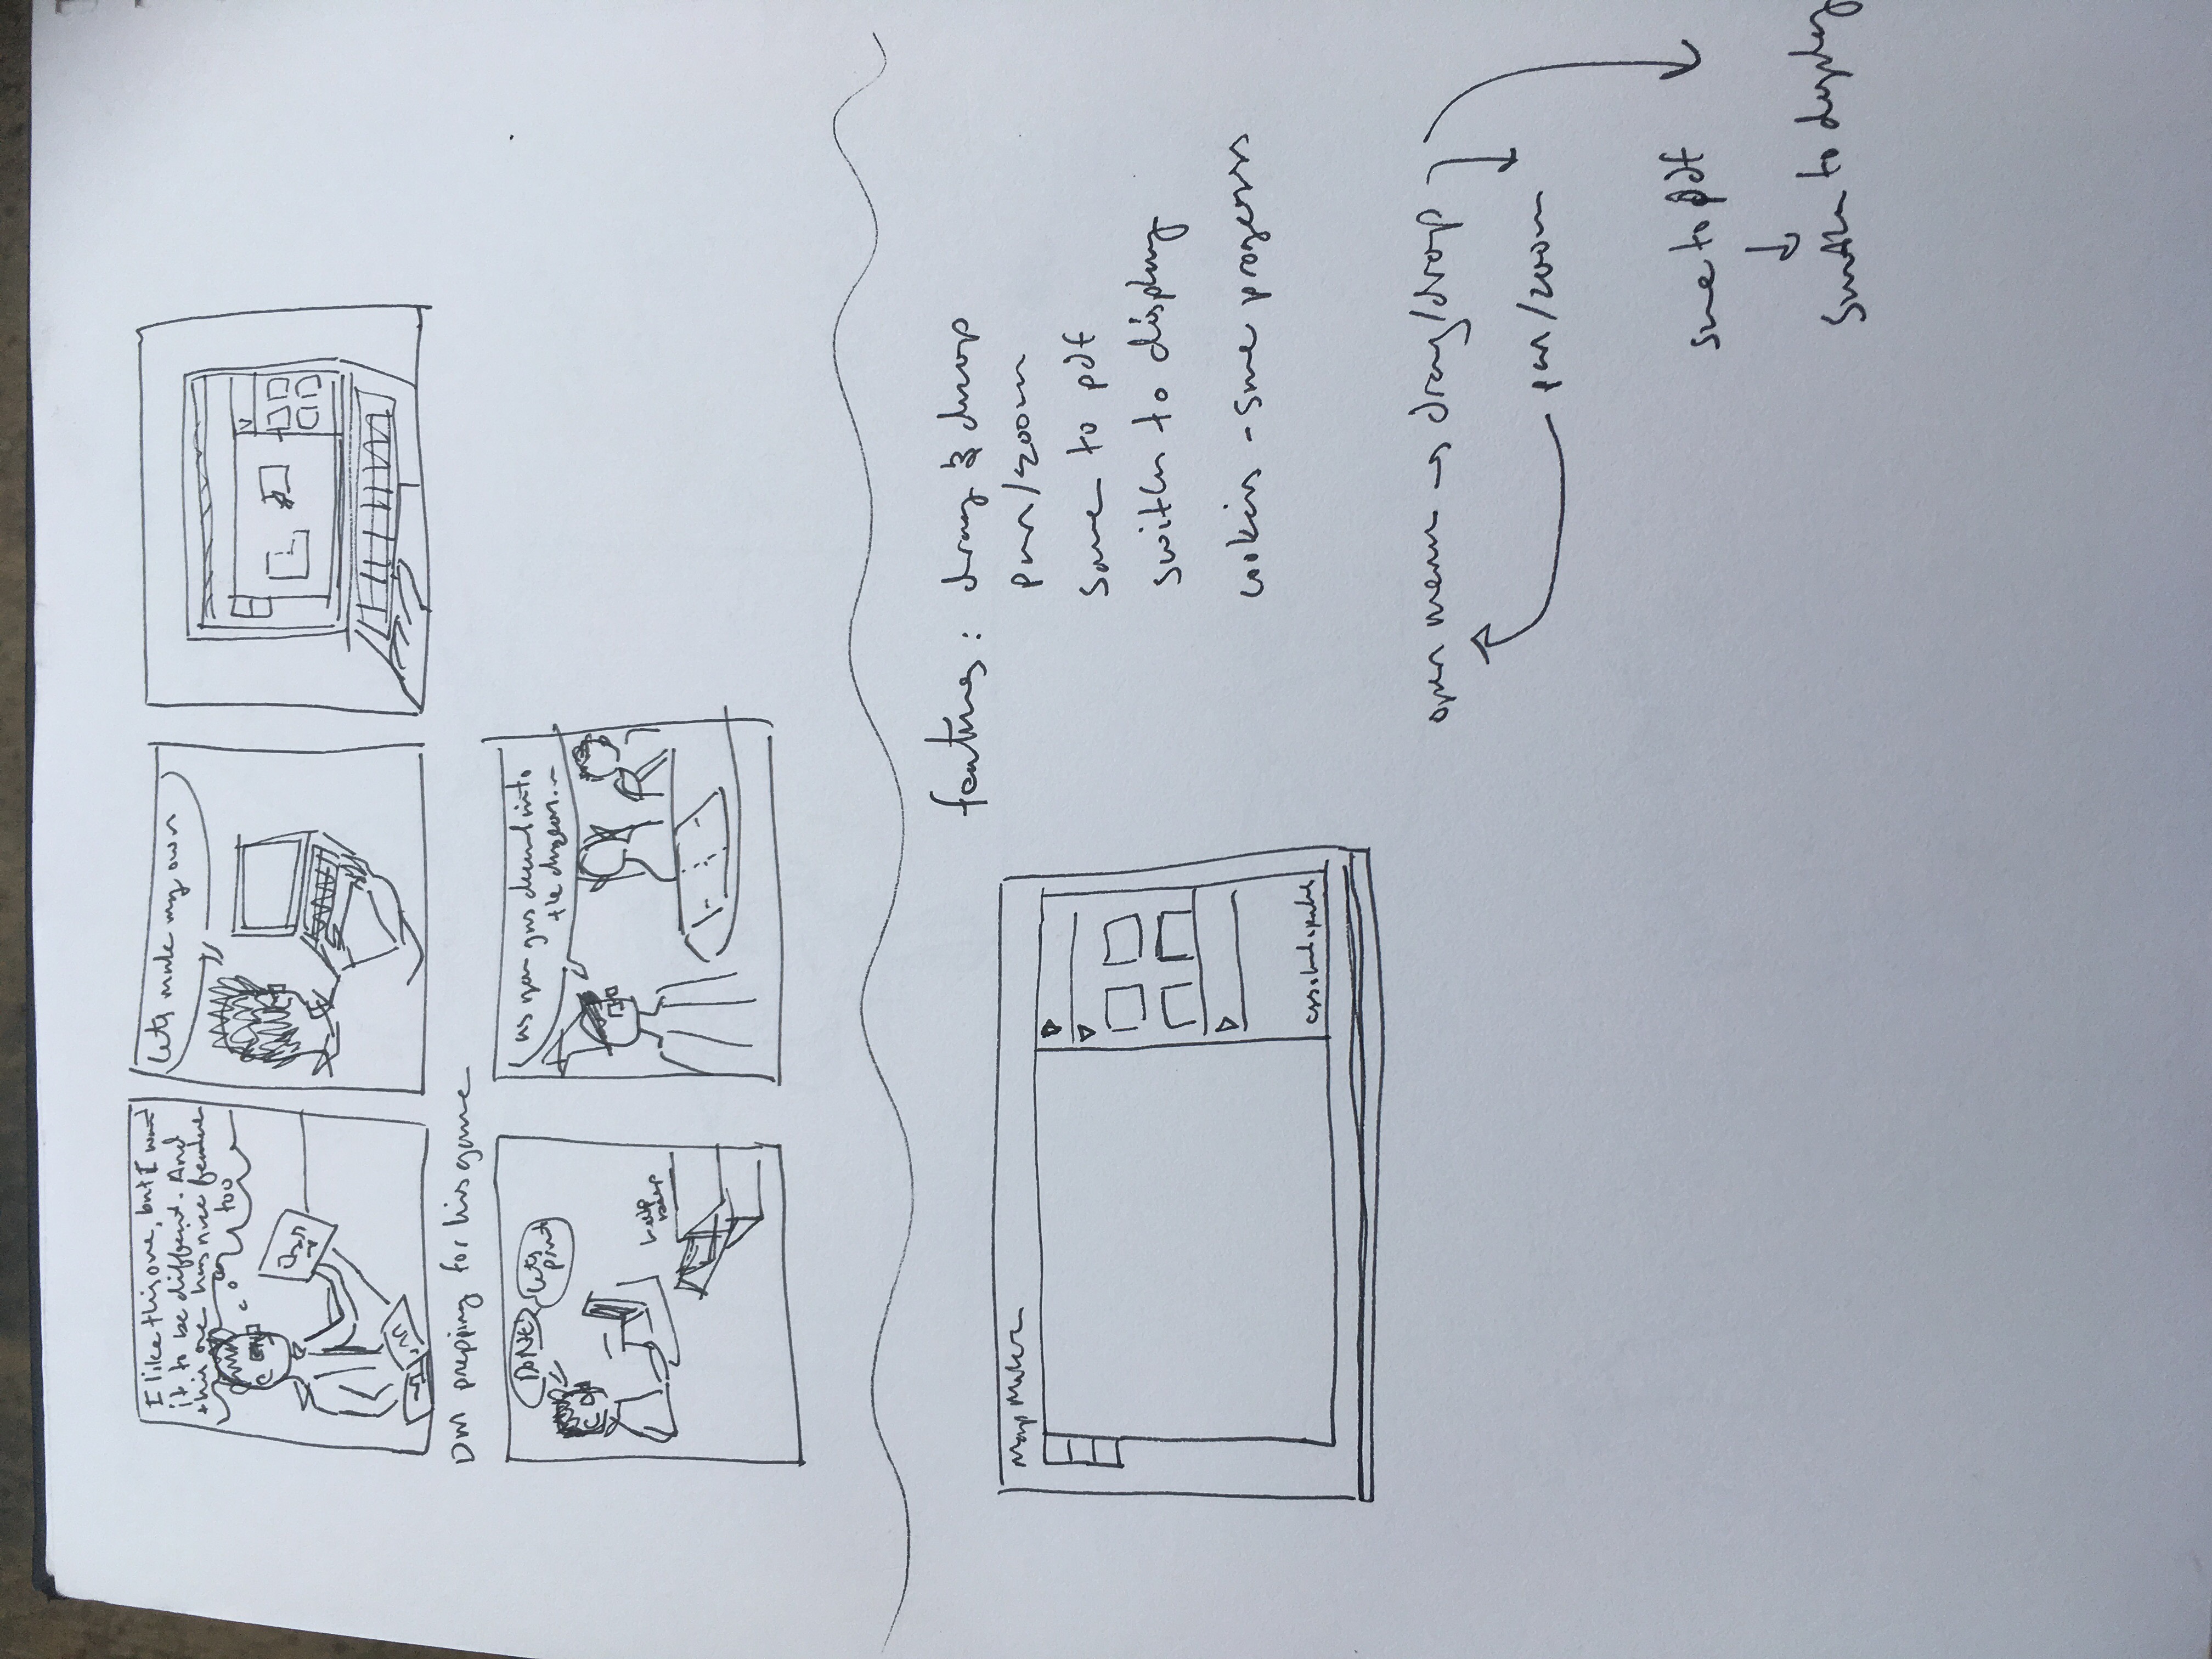 I like this one, but I want
it to be different. And
this one has nice features
too
lets make my own
DM prepping for his game
DONE!
lets
print
beep
beep
as you guys descend into
the dungeon...
Map Maker
features: drag & drop
pan/zoom
save to pdf
switch to display
cookies - save progress
open menu → drag/drop
pan/zoom
save to pdf
↓
Switch to display